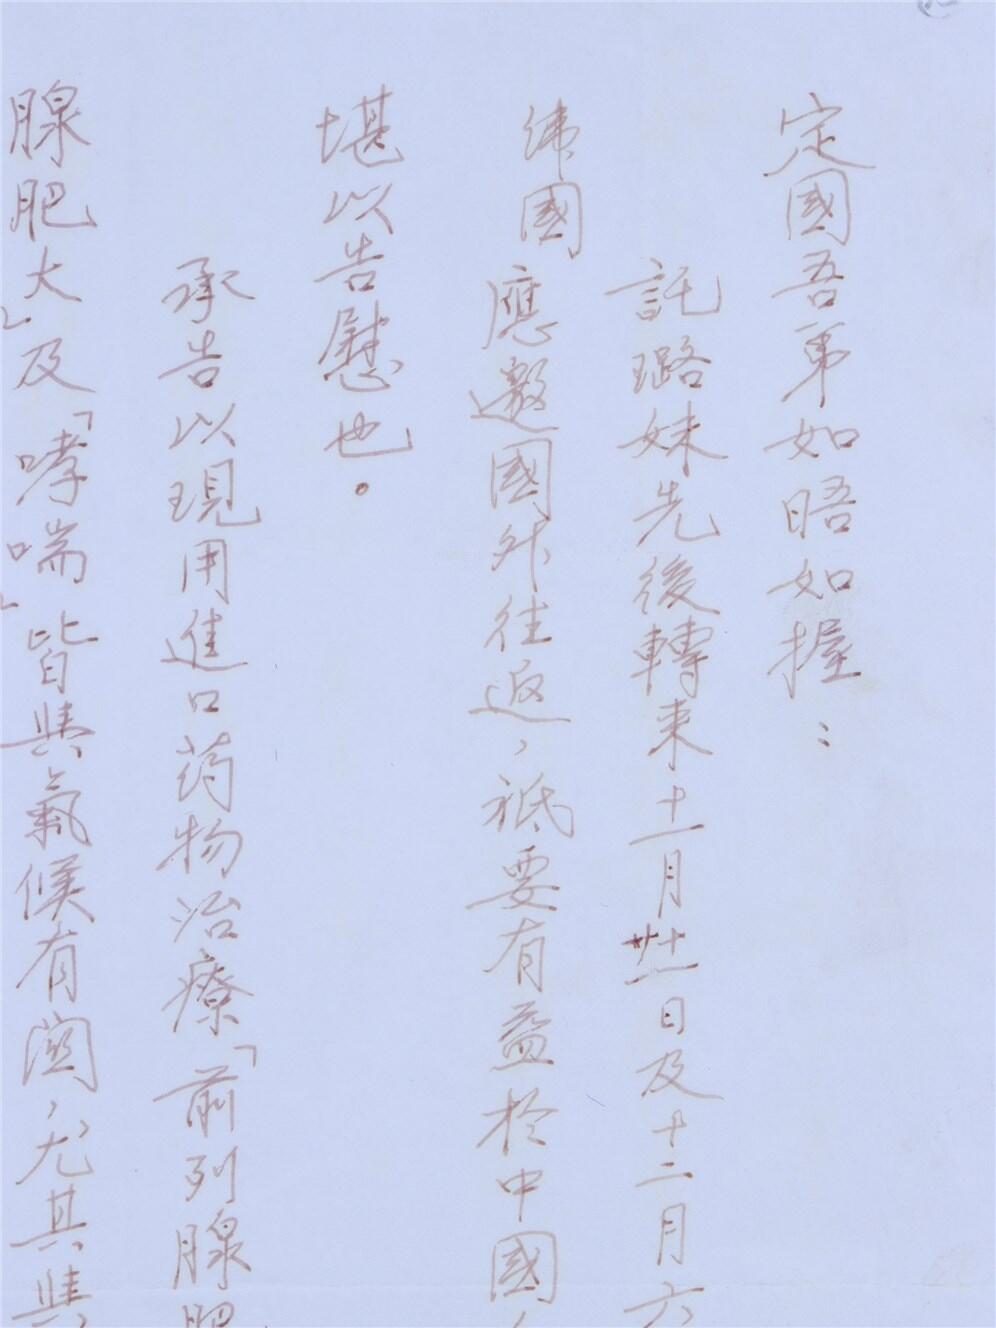 定國吾弟如晤如握：
託璐妹先後轉来十一月廿一日及十二月六
緯國應邀國外往返，祗要有益於中國，
堪以告慰也。
承告以現用進口药物治療「前列腺肥
腺肥大」及「哮喘」皆與氣候有関，尤其與